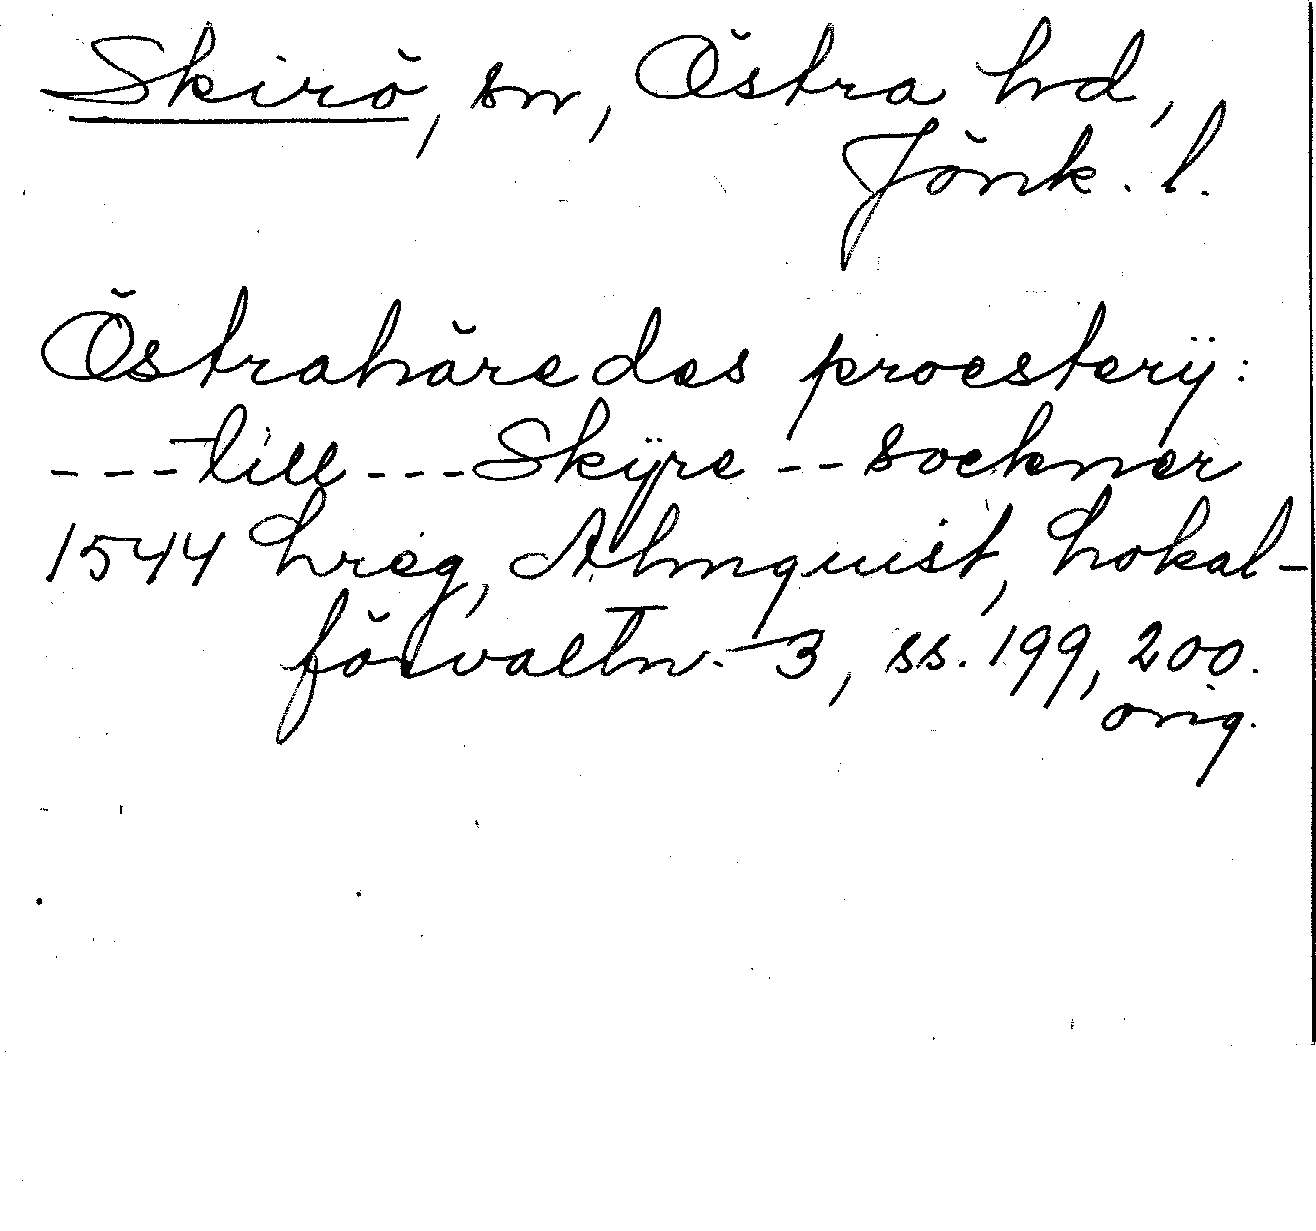 Skirö, sn, Östra hd,
Jönk. l.
Östrahäredes proesterÿ:
---till---Skÿre--sockner
1544 Lreg, Almquist, Lokal-
förvaltn. 3, ss. 199, 200.
orig.